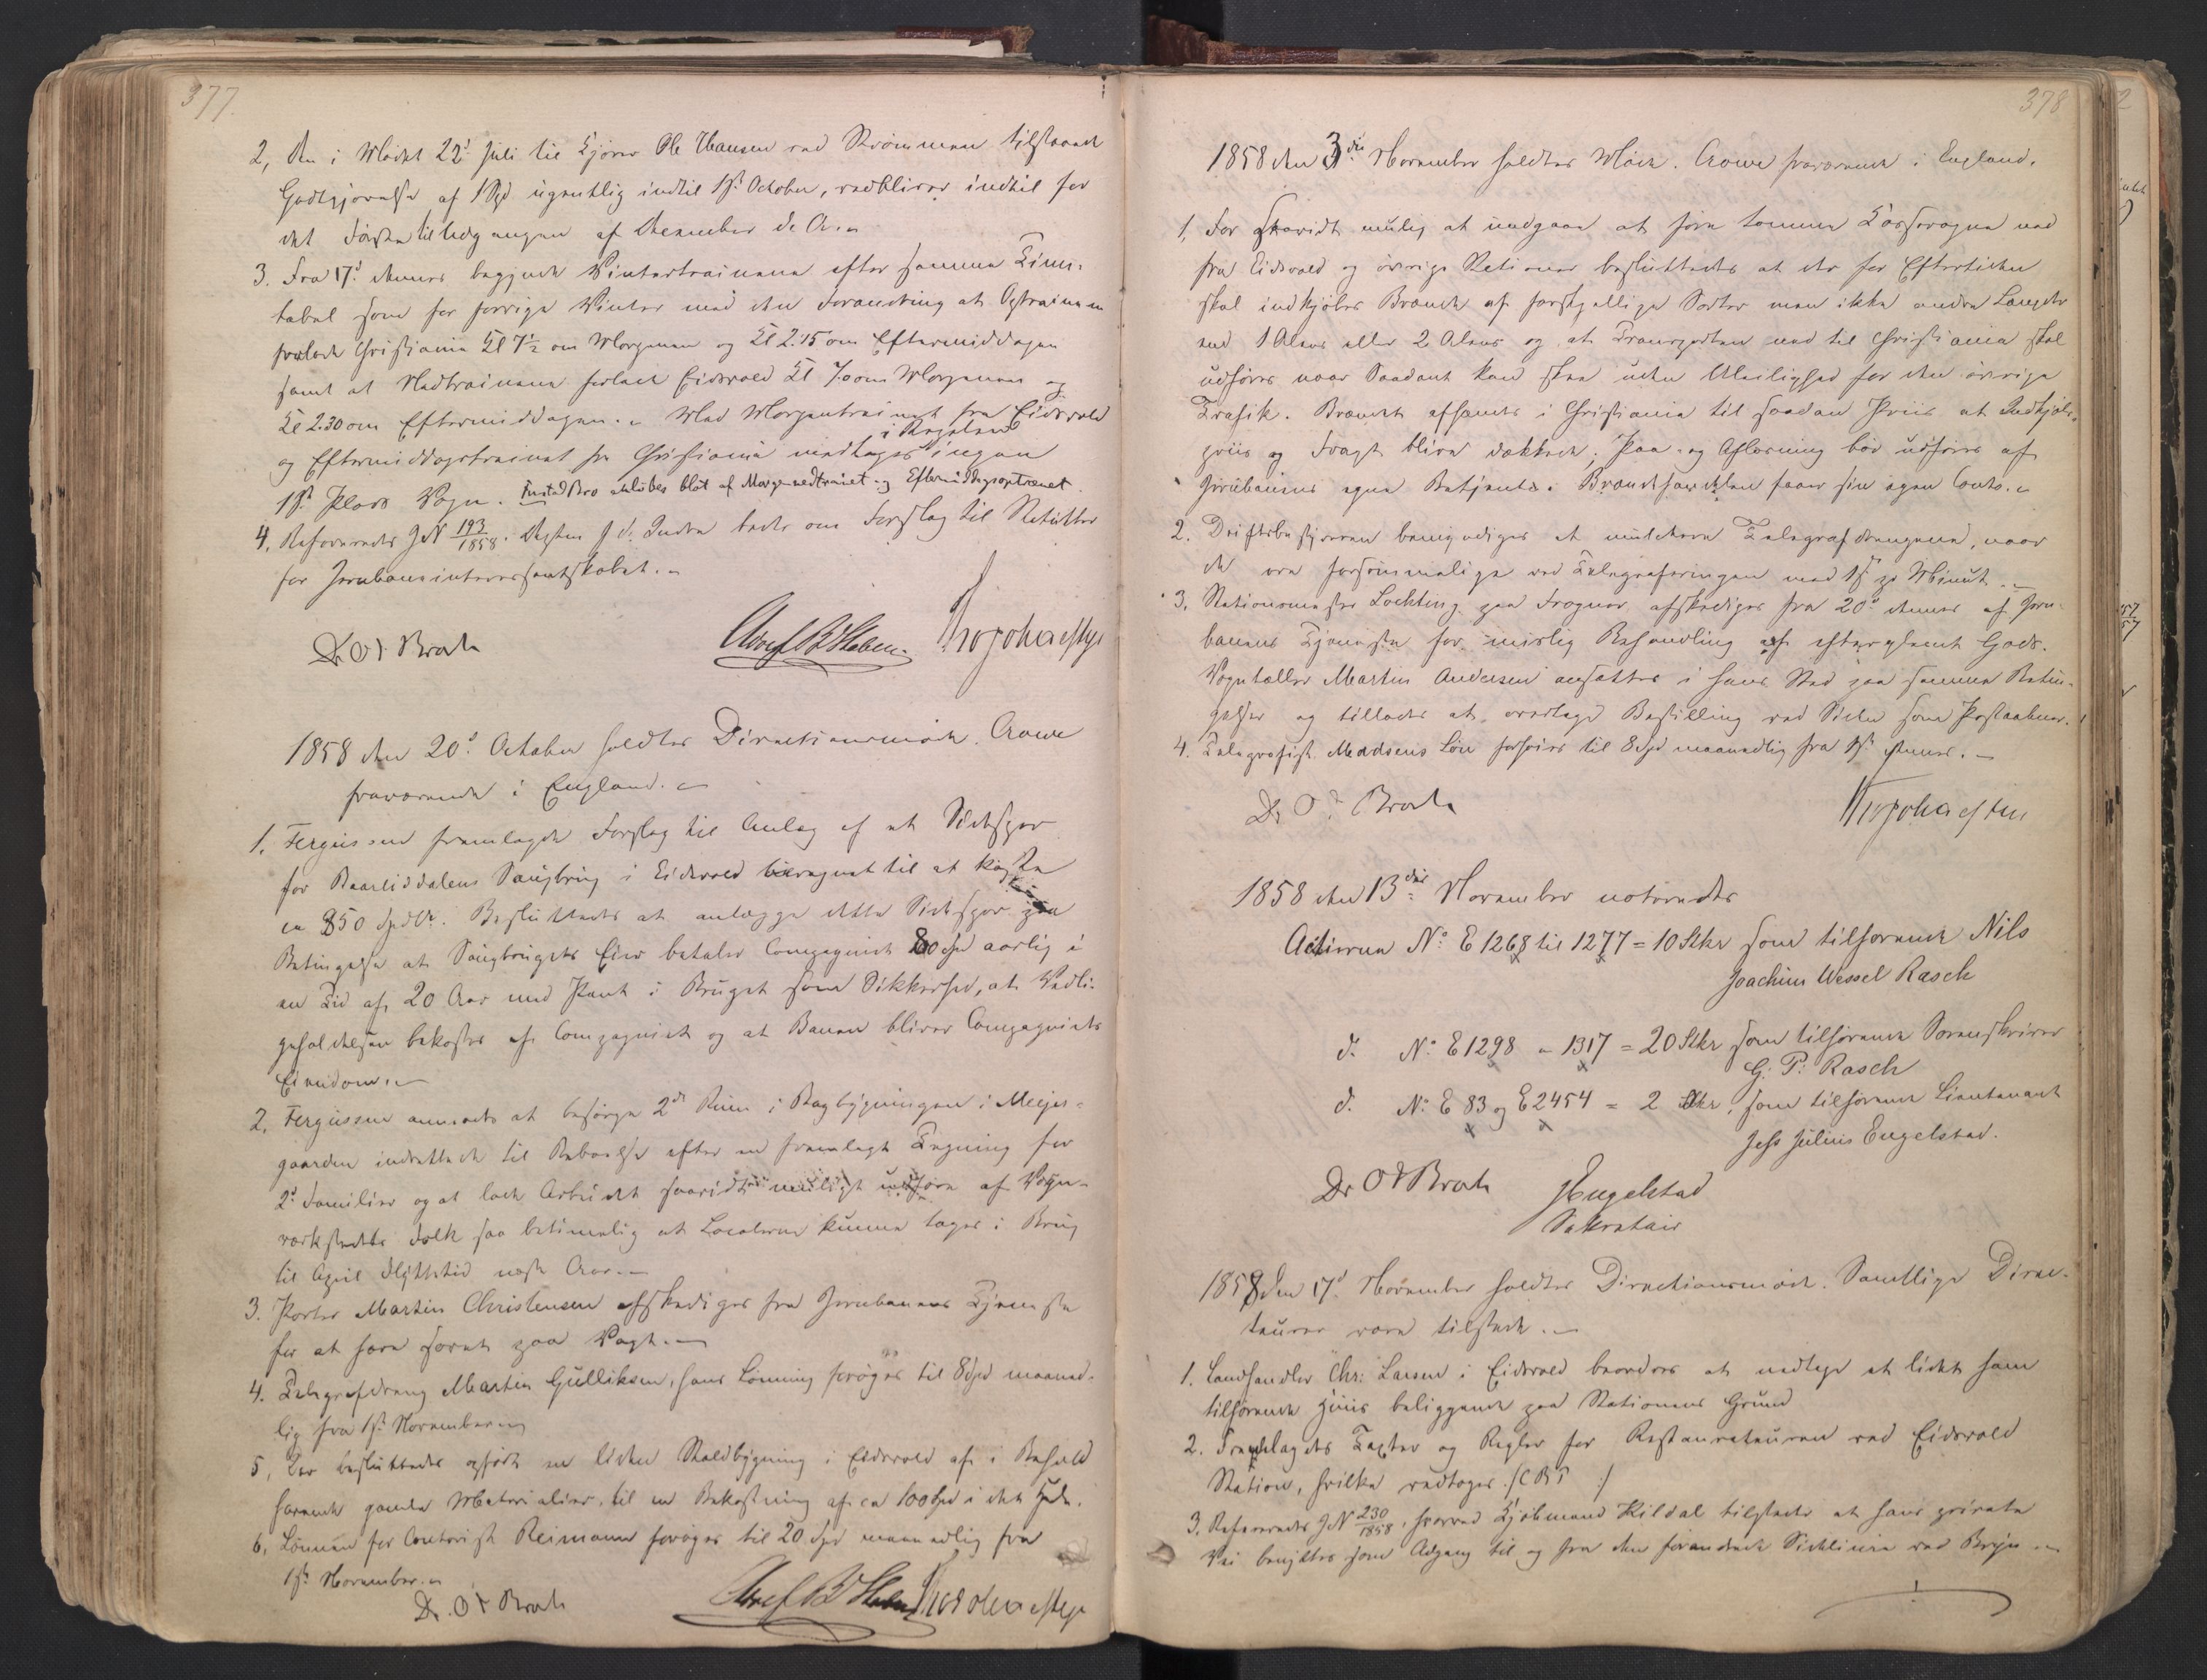 377
2, Den i Mødet 22d Juli til Kjører Ole Hansen ved Strømmen tilstaaede
Godtgjørelse af 1 Spd ugentlig indtil 1ste October, vedbliver indtil for
det Første til Udgangen af Dezember d. A.
3. Fra 17d dennes begynde Vintertrainene efter samme Time-
tabel som for forrige Vinter med den Forandring at Optrainene
forlade Christiania Kl 7½ om Morgenen og Kl 2.15 om Eftermiddagen
samt at Nedtrainene forlade Eidsvold Kl 7.00 om Morgenen og
Kl 2.30 om Eftermiddagen. Med Morgentrainet fra Eidsvold
og Eftermiddagstrainet fra Christiania medtages i Regelen ingen
1ste Plads Vogn. Frustad Bro anløbes blot af Morgennedtrainet og Eftermiddagsoptrainet
4. Refereredes JN 193/1858. Depten f. d. Indre beder om Forslag til Statutter
for Jernbaneinteressentskabet.
Dr O J Broch
1858 den 20d October holdtes Directionsmøde. Crowe
fraværende i England.
1. Ferguson fremlagde Forslag til Anlæg af et Sidespor
for Baarlidalens Saugbrug i Eidsvold beregnet til at koste
ca 850 Spdlr. Besluttedes at anlægge dette Sidespor paa
Betingelse at Saugbrugets Eier betaler Compagniet 80 Spd aarlig i
en Tid af 20 Aar med Pant i Bruget som Sikkerhed, at Vedli-
geholdelsen bekostes af Compagniet og at Banen bliver Compagniets
Eiendom.
2. Ferguson anmodes at besørge 2de Rum i Bagbygningen i Meyer-
gaarden indrettede til Beboelse efter en fremlagt Tegning for
2d Familier og at lade Arbeidet saavidt muligt udføre af Vogn-
værkstedets Folk saa betimelig at Localerne kunne tages i Brug
til April Flyttetid næste Aar.
3. Porter Martin Christensen afskediges fra Jernbanens Tjeneste
for at have sovet paa Vagt.
4. Telegrafdreng Martin Gulliksen, hans Lønning forøges til 8 Spd maaned-
lig fra 1ste November
5, Der besluttedes opført en liden Staldbygning i Eidsvold af i Behold
havende gamle Materialier til en Bekostning af ca 100 Spd i det Hele.
6, Lønnen for Contorist Reimann forøges til 20 Spd maanedlig fra
1ste November.
Dr. O J Broch
378
1858 den 3die November holdtes Møde. Crowe fraværende i England.
1, For saavidt mulig at undgaae at føre tomme Lastevogne ned
fra Eidsvold og øvrige Stationer besluttedes at der for Eftertiden
skal indkjøbes Brænde af forskjellige Sorter men ikke andre Længder
end 1 Alens eller 2 Alens og at Transporten ned til Christiania skal
udføres naar Saadant kan skee uden Uleilighed for den øvrige
Trafik. Brændet afhændes i Christiania til saadan Priis at Indkjøbs-
priis og Fragt blive dækkede; Paa- og Aflæsning bør udføres af
Jernbanens egne Betjente. Brændehandelen faaer sin egen Conto.
2. Driftsbestyreren bemyndiges at mulctere Telegrafdrengene, naar
de ere forsømmelige ved Telegraferingen med 1 ß pr Minut.
3, Stationsmester Lochting paa Frogner afskediges fra 20d dennes af Jern-
banens Tjeneste for mislig Behandling af efterglemt Gods.
Vogntæller Martin Andersen ansættes i hans Sted paa samme Betin-
gelser og tillades at overtage Bestilling ved Siden som Postaabner.
4. Telegrafist Madsens Løn forhøies til 8 Spd maanedlig fra 1ste dennes.
Dr O J Broch
1858 den 13die November noteredes
Actierne No. E 1268 til 1277 = 10 Stkr som tilhørende Nils
Joachim Wessel Rasch
d. No. E 1298 - 1317 = 20 Stkr som tilhørende Sorenskriver
G. P. Rasch
d. No. E 83 og E 2454 = 2 Stkr, som tilhørende Lieutenant
Jess Julius Engelstad.
Dr O J Broch
JEngelstad
Sekretair
1858 den 17d November holdtes Directionsmøde. Samtlige Direc-
teurer vare tilstede.
1. Landhandler Chr: Larsen i Eidsvold beordres at nedtage et lidet ham
tilhørende Huus beliggende paa Stationens Grund
2. Fremlagdes Taxter og Regler for Restaurateuren ved Eidsvold
Station, hvilke vedtoges /: C B T :/
3. Refereredes JN 230/1858, hvorved Kjøbmand Kildal tilsteder at hans private
Vei benyttes som Adgang til og fra den forandrede Sidelinie ved Bryn